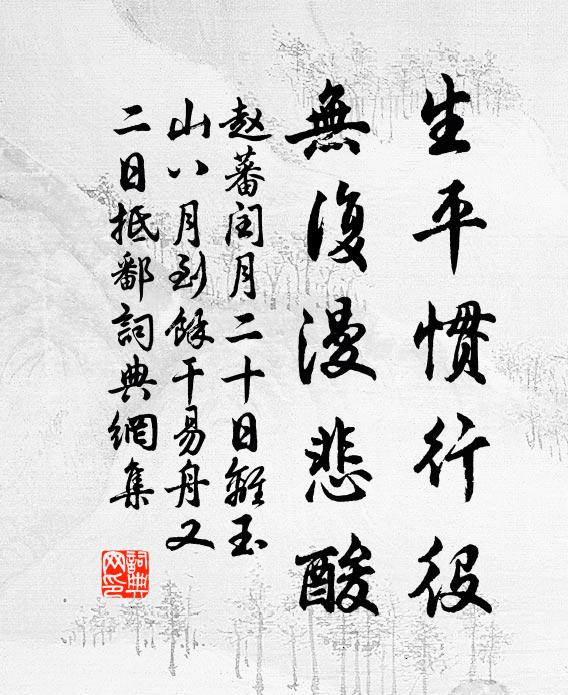 生平慣行役
無復漫悲酸
赵蕃闰月二十日離玉
山八月到餘干易舟又
二日抵鄱詞典網集
詞典网印